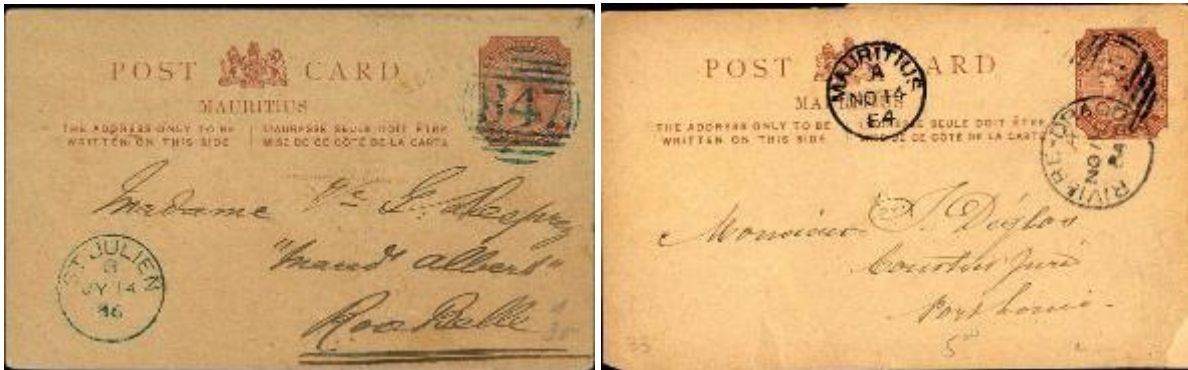 POST CARD
MAURITIUS
THE ADDRESS ONLY TO BE WRITTEN ON THIS SIDE
L'ADRESSE SEULE DOIT ÊTRE MISE DE CE CÔTÉ DE LA CARTE
B47
Madame Ve
"Maud Albert"
Rose Belle
ST JULIEN
B
JY 14
POST CARD
MAURITIUS
THE ADDRESS ONLY TO BE WRITTEN ON THIS SIDE
SEULE DOIT ÊTRE MISE DE CE CÔTÉ DE LA CARTE
MAURITIUS
A
NO 14
84
RIVIERE-DRAGO
NO
84
Monsieur
Port Louis